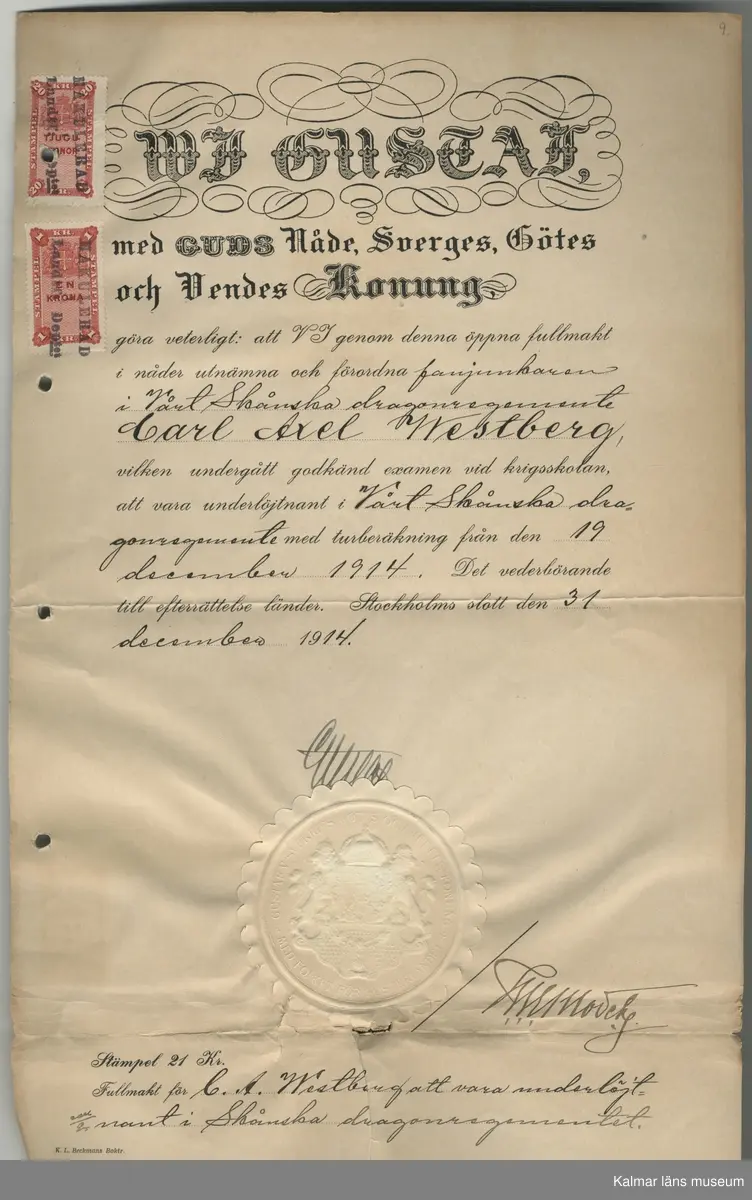 9.
20 KR. 20
STÄMPEL
TJUGO
KRONOR
20
MAKULERAD
1 KR. 1
STÄMPEL
EN
KRONA
1 1
MAKULERAD
WJ GUSTAF,
med GUDS Nåde, Sverges, Götes
och Vendes Konung,
göra veterligt: att VJ genom denna öppna fullmakt
i nåder utnämna och förordna fanjunkaren
i Vårt Skånska dragonregemente
Carl Axel Westberg,
vilken undergått godkänd examen vid krigsskolan,
att vara underlöjtnant i Vårt Skånska dra-
gonregemente med turberäkning från den 19
december 1914. Det vederbörande
till efterrättelse länder. Stockholms slott den 31
december 1914.
Gustaf
Stämpel 21 Kr.
Fullmakt för C. A. Westberg att vara underlöjt-
nant i Skånska dragonregementet.
K. L. Beckmans Boktr.
Kalmar läns museum